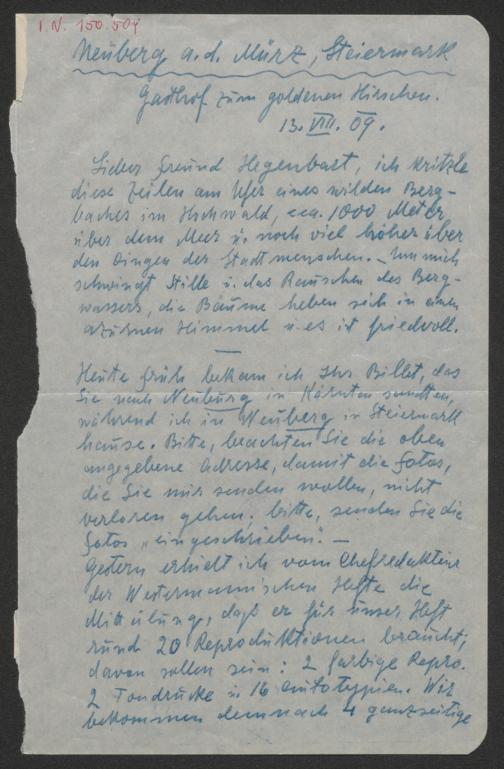 I.N. 150.504
Neuberg a.d. Mürz, Steiermark
Gasthof zum goldenen Hirschen.
13. VIII. 09.
Lieber Freund Hegenbart, ich kritzle
diese Zeilen am Ufer eines wilden Berg-
baches im Hochwald, cca. 1000 Meter
über dem Meer u. noch viel höher über
den Dingen der Stadtmenschen. – Um mich
schwingt Stille u. das Rauschen des Berg-
wassers, die Bäume heben sich in einen
azurnen Himmel u es ist friedvoll.
—
Heute früh bekam ich Ihr Billet, das
Sie nach Neuburg in Kärnten sandten,
während ich in Neuberg in Steiermark
hause. Bitte, beachten Sie die oben
angegebene Adresse, damit die Fotos,
die Sie mir senden wollen, nicht
verloren gehen. bitte, senden Sie die
Fotos „eingeschrieben". –
Gestern erhielt ich vom Chefredakteur
der Westermann'schen Hefte die
Mitteilung, daß er für unser Heft
rund 20 Reproduktionen braucht;
davon sollen sein: 2 farbige Repro.
2 Tondrucke u 16 Autotypien. Wir
bekommen demnach 4 ganzseitige